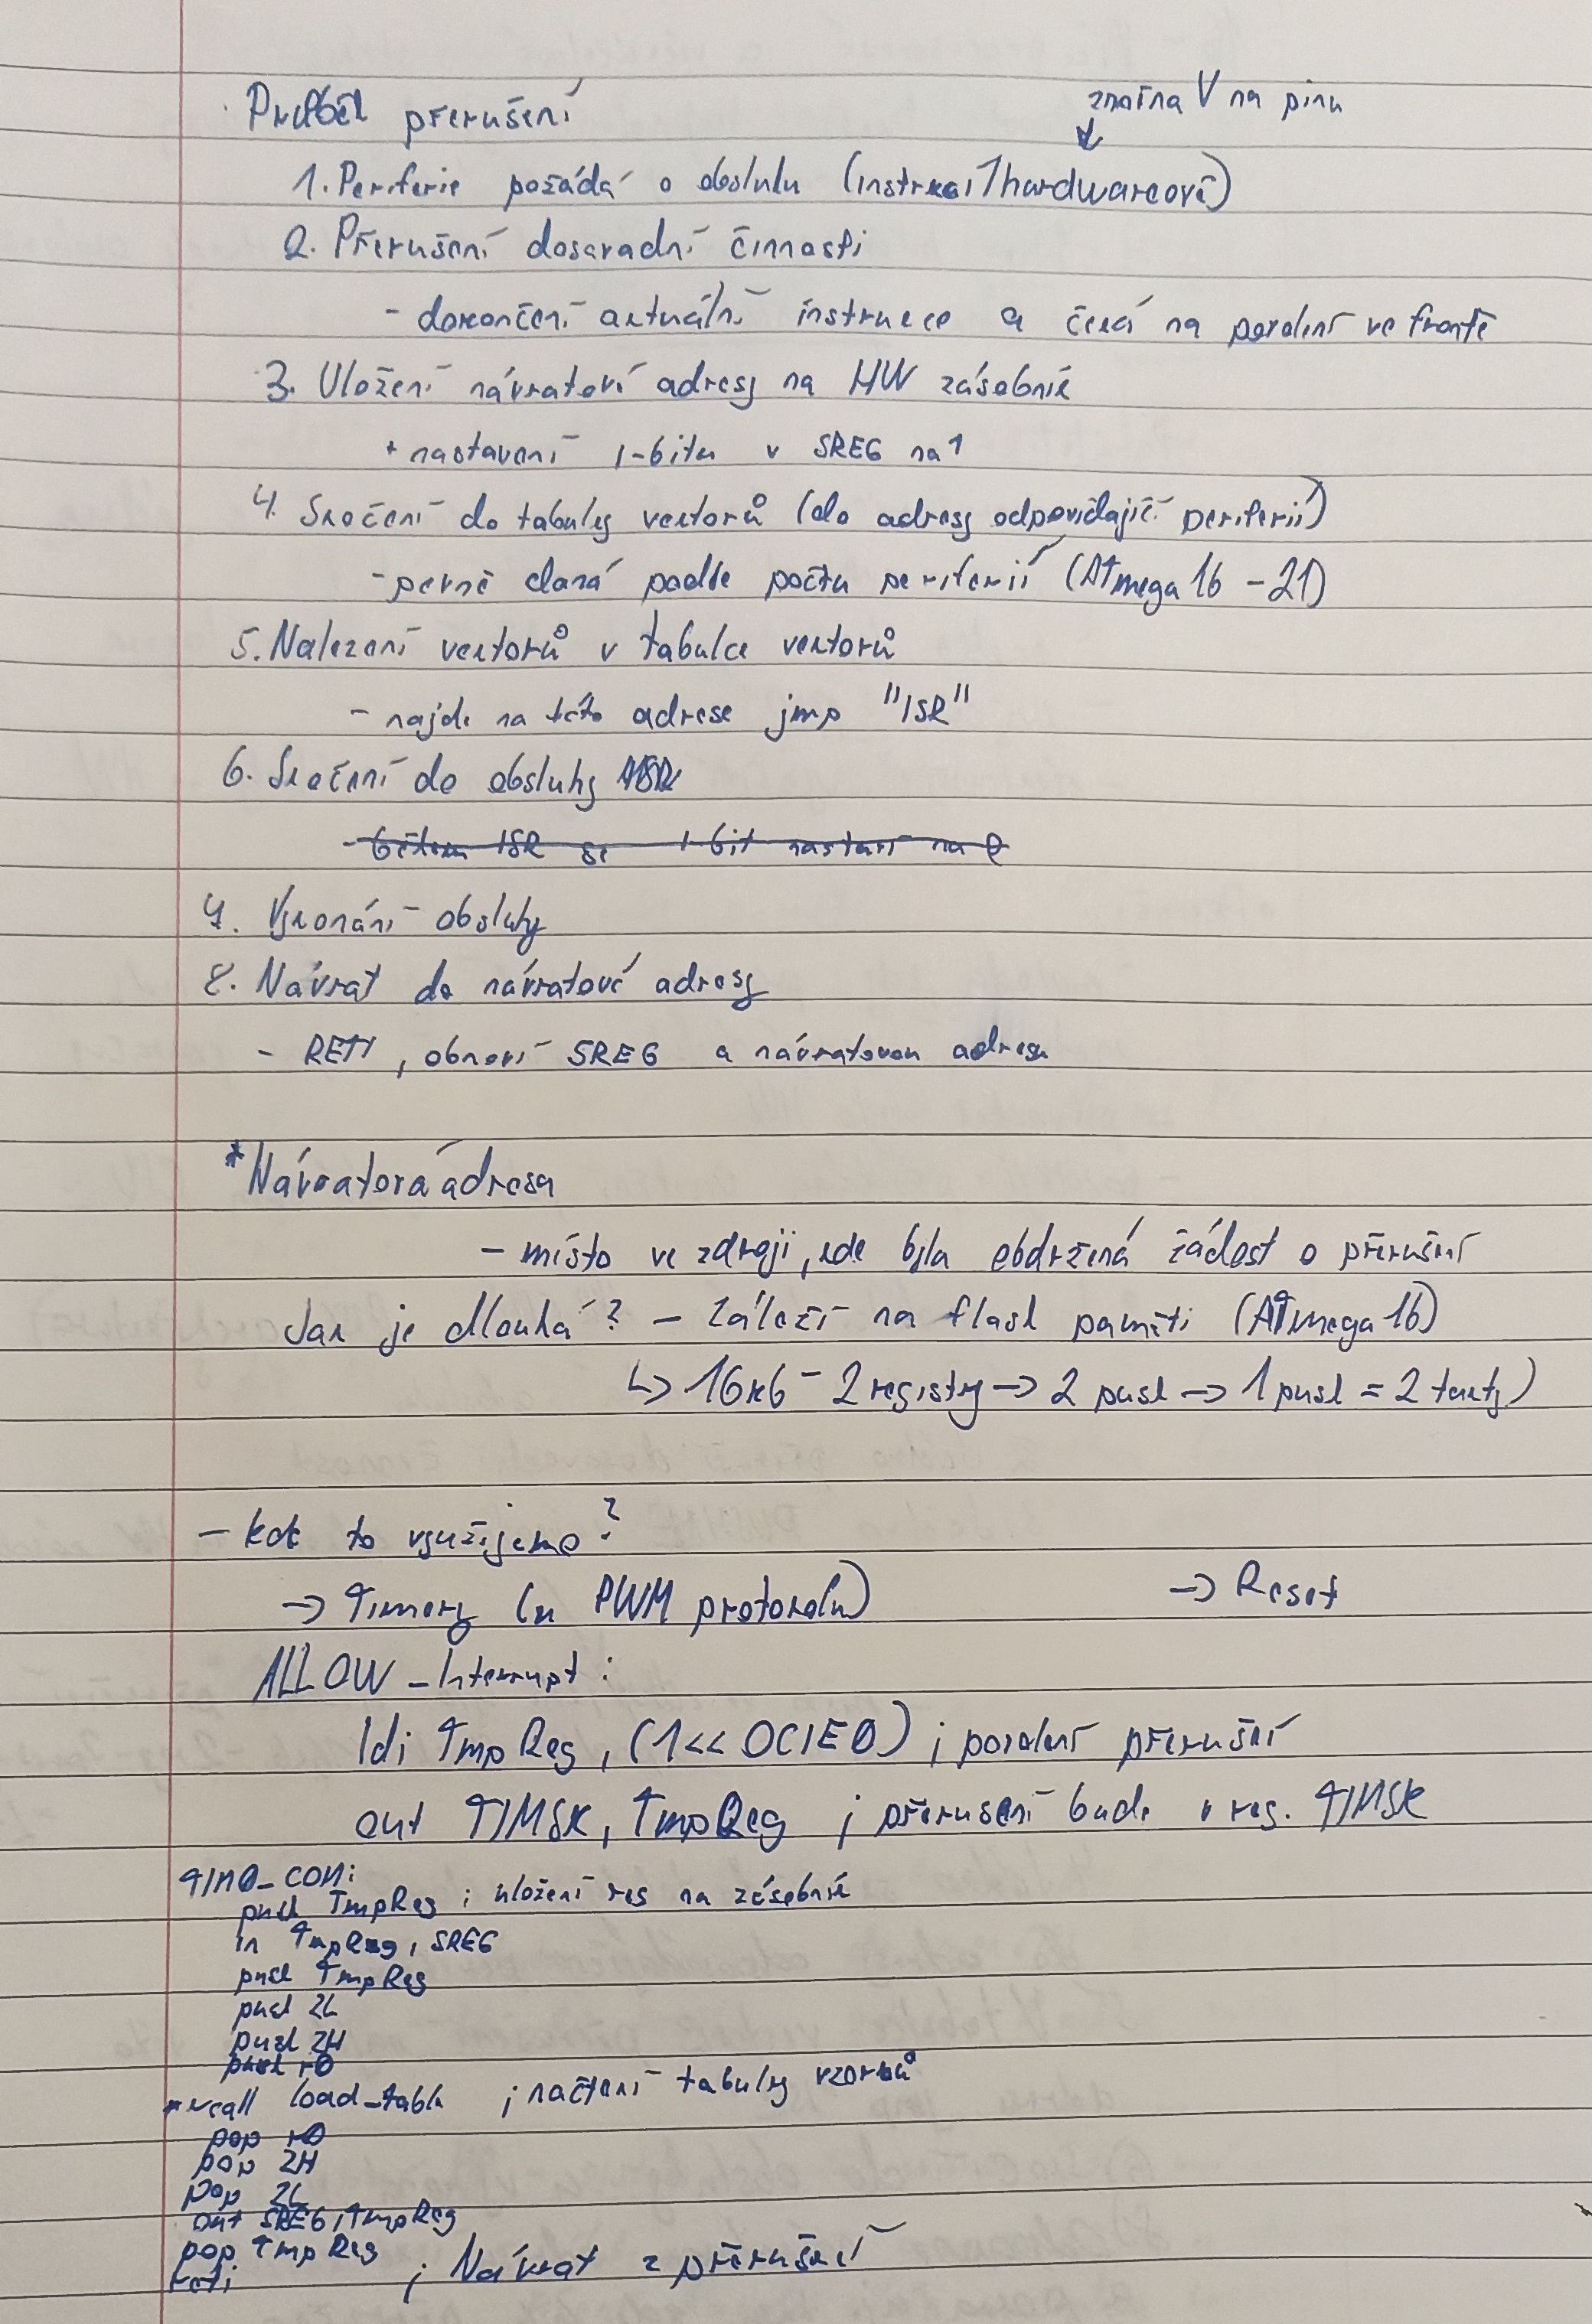 Průběh přerušení
změna V na pinu
↓
1. Periferie požádá o obsluhu (instrukcí/hardwarově)
2. Přerušení dosavadní činnosti
- dokončení aktuální instrukce a čeká na povolení ve frontě
3. Uložení návratové adresy na HW zásobník
+ nastavení I-bitu v SREG na 1
4. Skočení do tabulky vektorů (do adresy odpovídající periferii)
- pevně daná podle počtu periferií (ATmega 16 - 21)
5. Nalezení vektorů v tabulce vektorů
- najde na této adrese jmp "ISR"
6. Skočení do obsluhy ISR
- během ISR se I-bit nastaví na 0
7. Vykonání obsluhy
8. Návrat do návratové adresy
- RETI, obnoví SREG a návratovou adresu
* Návratová adresa
- místo ve zdroji, kde byla obdržená žádost o přerušení
Jak je dlouhá? - Záleží na flash paměti (ATmega 16)
↳ 16kb - 2 registry → 2 push → 1 push = 2 takty)
- kde to využijeme?
→ Timery (u PWM protokolu) → Reset
ALLOW_Interrupt:
ldi TmpReg, (1<<OCIE0) ; povolení přerušení
out TIMSK, TmpReg ; přerušení bude v reg. TIMSK
TIM0_COM:
push TmpReg ; uložení reg na zásobník
in TmpReg, SREG
push TmpReg
push ZL
push ZH
push r0
rcall load_tabh ; načtení tabulky vzorků
pop r0
pop ZH
pop ZL
out SREG, TmpReg
pop TmpReg
reti ; Návrat z přerušení